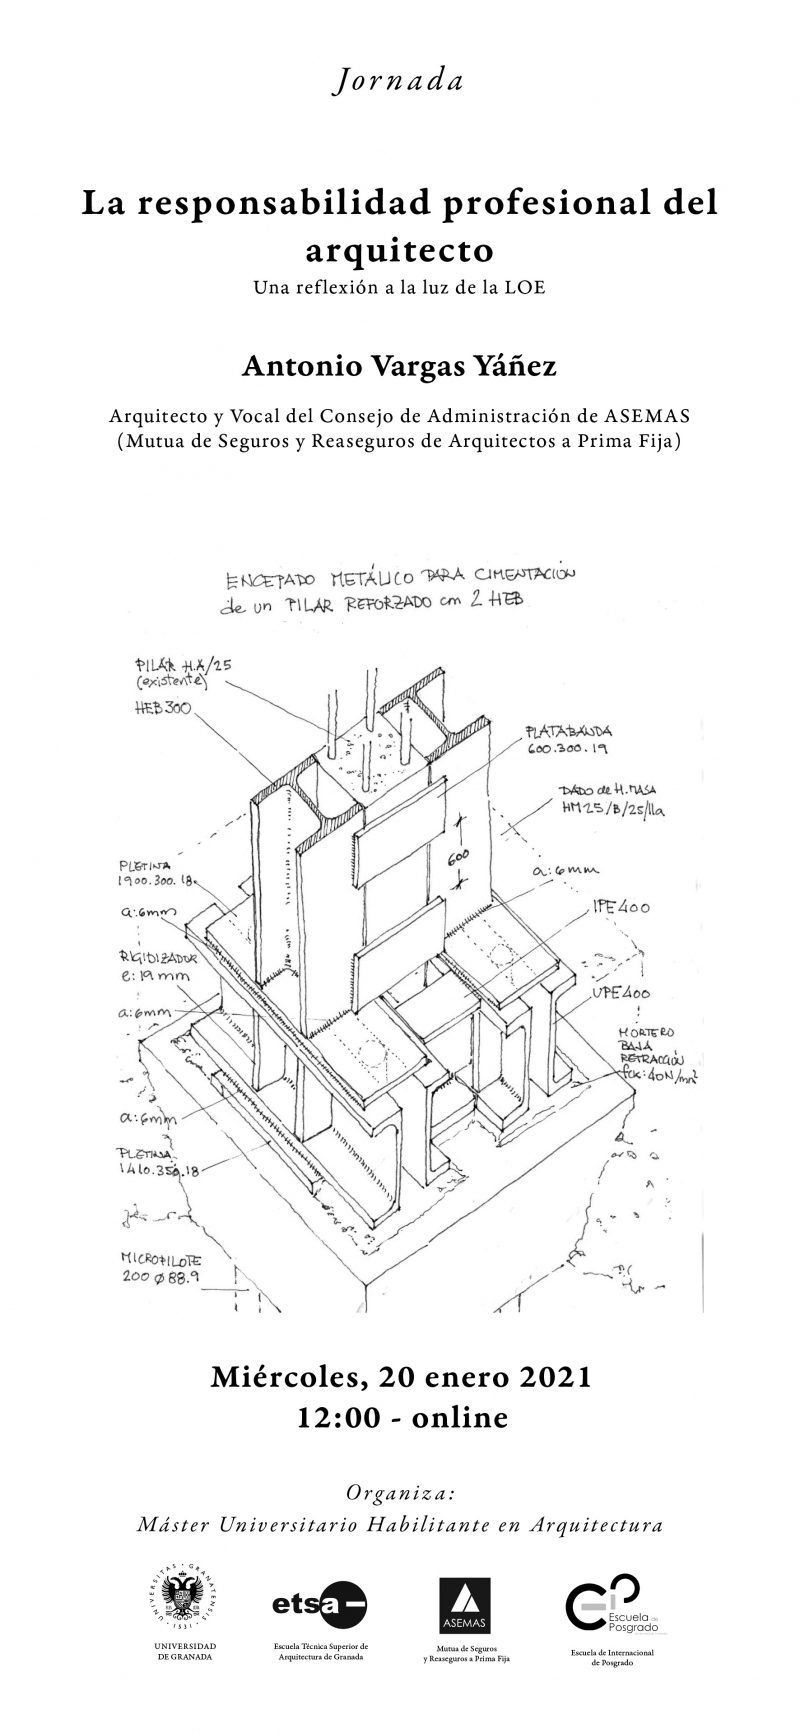 Jornada
La responsabilidad profesional del
arquitecto
Una reflexión a la luz de la LOE
Antonio Vargas Yáñez
Arquitecto y Vocal del Consejo de Administración de ASEMAS
(Mutua de Seguros y Reaseguros de Arquitectos a Prima Fija)
ENCEPADO METÁLICO PARA CIMENTACIÓN
de un PILAR REFORZADO con 2 HEB
PILAR H.A/25
(existente)
HEB 300
PLATABANDA
600.300.19
DADO de H. MASA
HM25/B/25/IIa
600
PLETINA
1900.300.18
a:6mm
a:6mm
IPE 400
RIGIDIZADOR
e:19mm
UPE 400
a:6mm
MORTERO
BAJA
RETRACCIÓN
fck:40N/mm²
a:6mm
PLETINA
1410.350.18
MICROPILOTE
200 ø 88.9
Miércoles, 20 enero 2021
12:00 - online
Organiza:
Máster Universitario Habilitante en Arquitectura
UNIVERSITAS · GRANATENSIS · 1531 ·
UNIVERSIDAD
DE GRANADA
etsa
Escuela Técnica Superior de
Arquitectura de Granada
ASEMAS
Mutua de Seguros
y Reaseguros a Prima Fija
Escuela de
Posgrado
Escuela de Internacional
de Posgrado